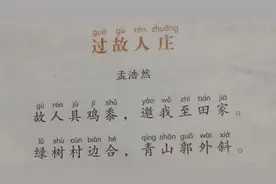 guò gù rén zhuāng
过故人庄
孟浩然
gù rén jù jī shǔ yāo wǒ zhì tián jiā
故人具鸡黍，邀我至田家。
lǜ shù cūn biān hé qīng shān guō wài xiá
绿树村边合，青山郭外斜。